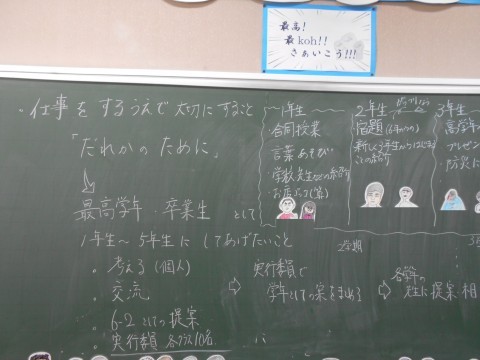 最高!
最koh!!
さぁいこう!!!
・仕事をするうえで大切にすること
「だれかのために」
最高学年・卒業生として
1年生〜5年生にしてあげたいこと
。考える(個人)
。交流
。6-2としての提案
。実行委員 各クラス10名
⇨ 実行委員で
学年としての案をまとめる
⇨ 各学年の
先生に提案・相
1年生
・合同授業
・言葉あそび
・学校、先生などの紹介
2年生
宿題
新しく3年生からはじまる
ことの紹介
3年生
高学年
プレゼン
・防災に
2学期